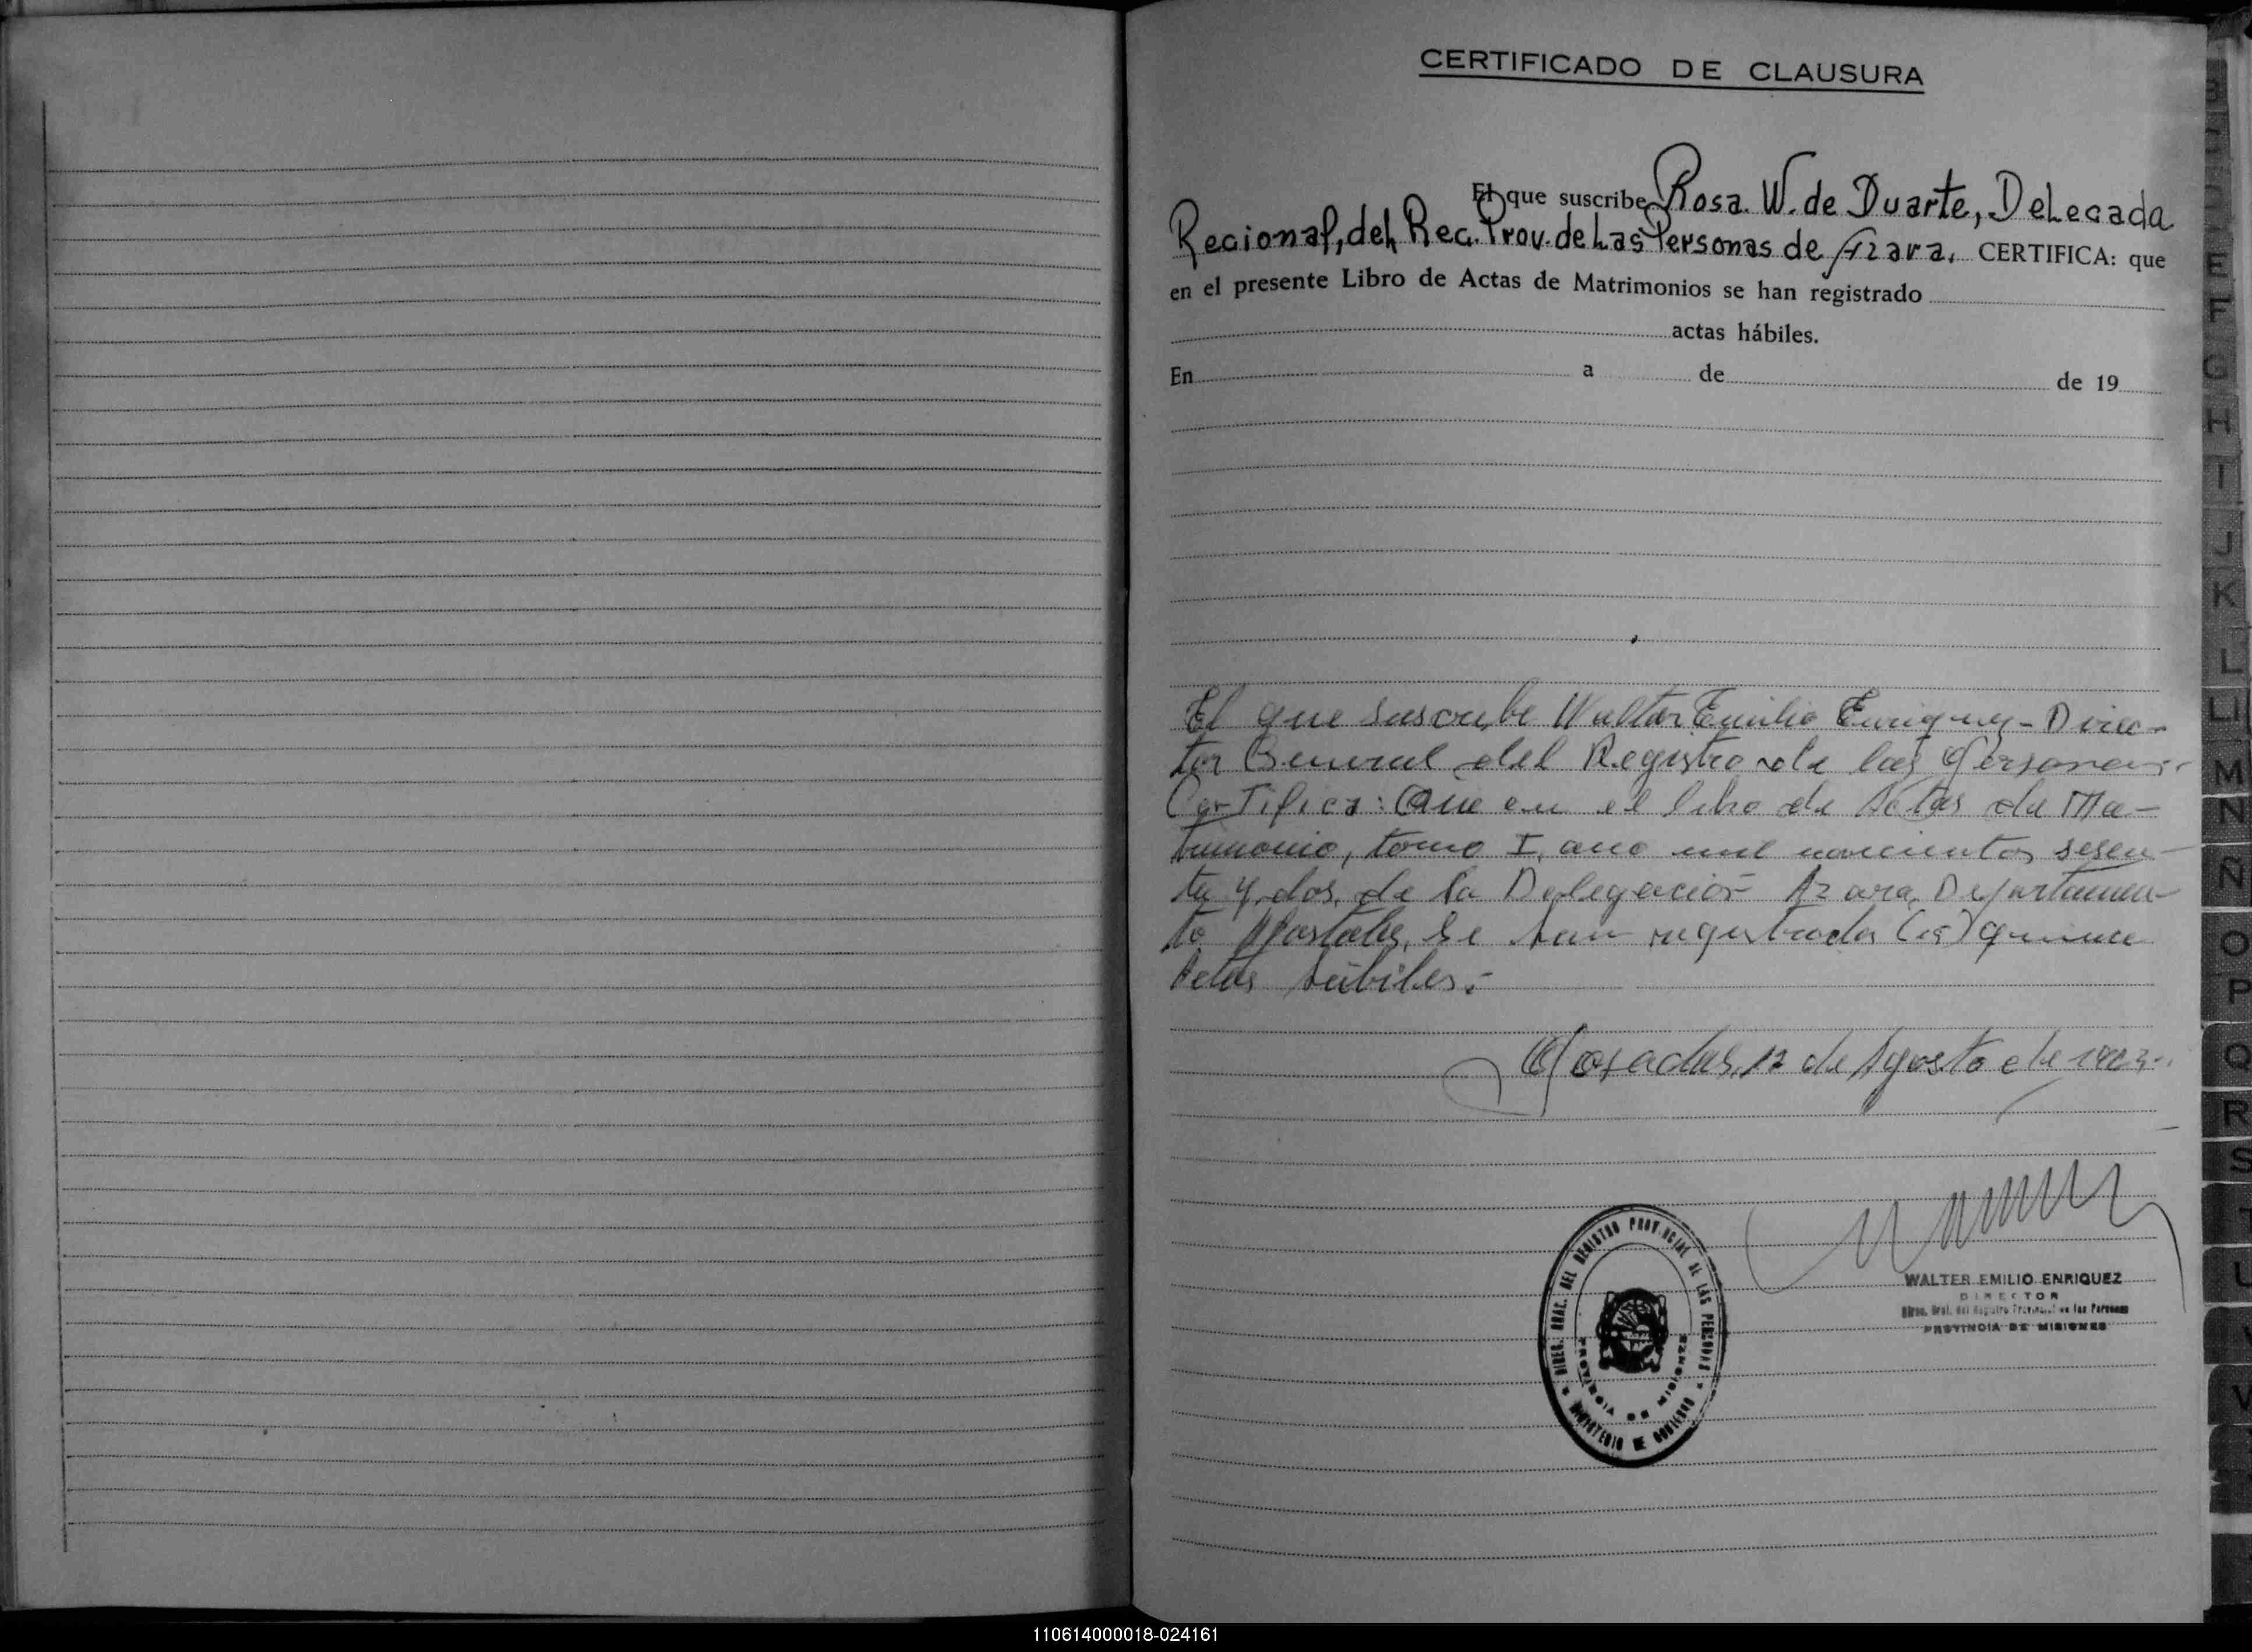 CERTIFICADO DE CLAUSURA
El que suscribe Rosa. W. de Duarte, Delegada
Regional, del Reg. Prov. de Las Personas de Azara. CERTIFICA: que
en el presente Libro de Actas de Matrimonios se han registrado
actas hábiles.
En a de de 19
El que suscribe Walter Emilio Enriquez - Direc-
tor General del Registro de las Personas.-
Certifica: Que en el libro de Actas de Ma-
trimonio, tomo I, año mil novecientos sesen-
ta y dos, de la Delegación Azara, Departamen-
to Apóstoles, se han registrado (15) quince
Actas hábiles.-
Posadas, 12 de Agosto de
WALTER EMILIO ENRIQUEZ
DIRECTOR
Direc. Gral. del Registro Provincial de las Personas
PROVINCIA DE MISIONES
DIREC. GRAL. DEL REGISTRO PROVINCIAL DE LAS PERSONAS
MINISTERIO DE GOBIERNO
PROVINCIA DE MISIONES
E
F
G
H
I
J
K
L
LL
M
N
Ñ
O
P
Q
R
S
T
U
V
110614000018-024161